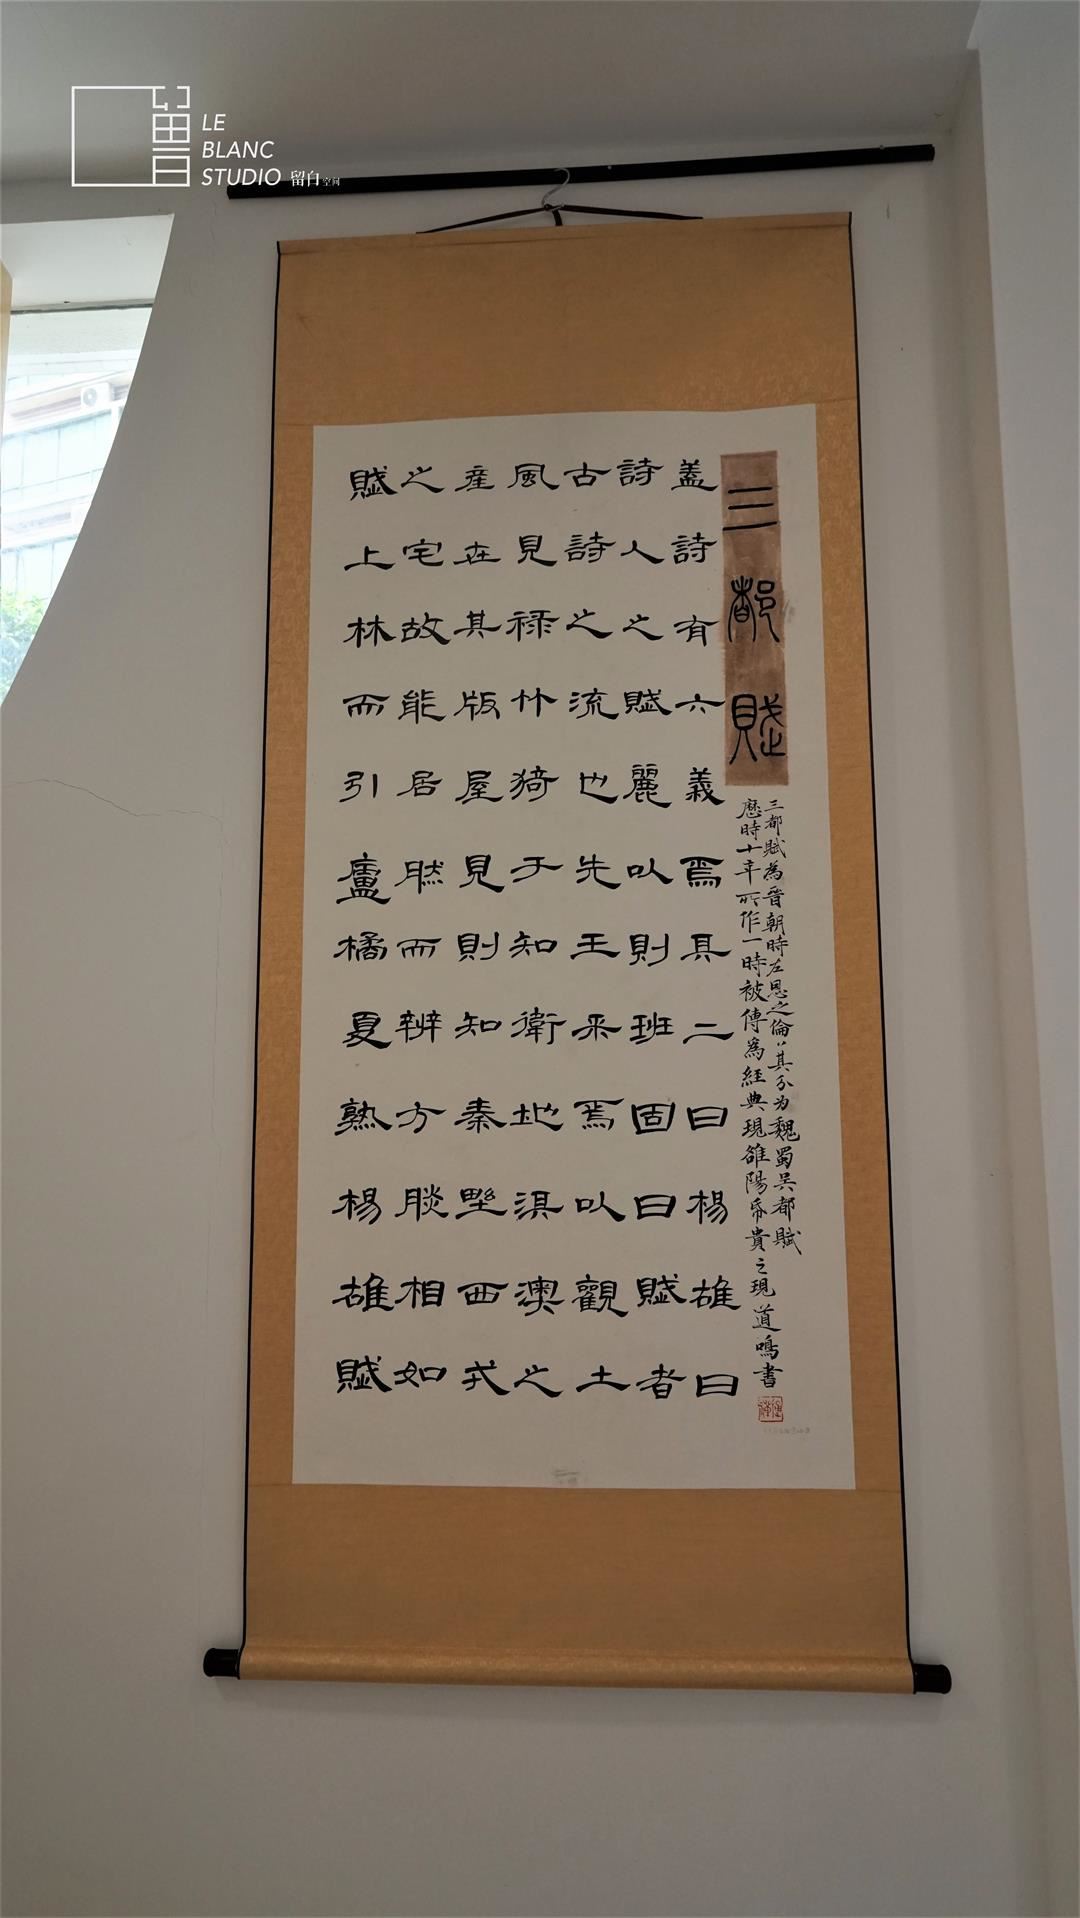 LE
BLANC
STUDIO 留白空间
三都賦
三都賦為晉朝時左思之倫其分为魏蜀吴都賦
歷時十年所作一時被傳為經典現雒陽帋貴之現 道鳴書
蓋詩有六義焉具二曰楊雄曰
詩人之賦麗以則班固曰賦者
古詩之流也先王采焉以觀土
風見禄竹猗于知衛地淇澳之
産在其版屋見則知秦野西戎
之宅故能居然而辨方朕相如
賦上林而引盧橘夏熟楊雄賦